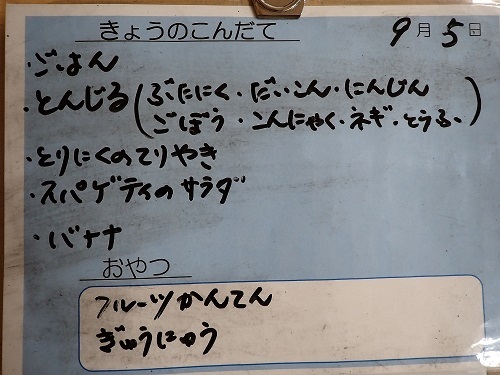 きょうのこんだて 9月5日
・ごはん
・とんじる(ぶたにく・だいこん・にんじん
ごぼう・こんにゃく・ネギ・とうふ)
・とりにくのてりやき
・スパゲティのサラダ
・バナナ
おやつ
フルーツかんてん
ぎゅうにゅう